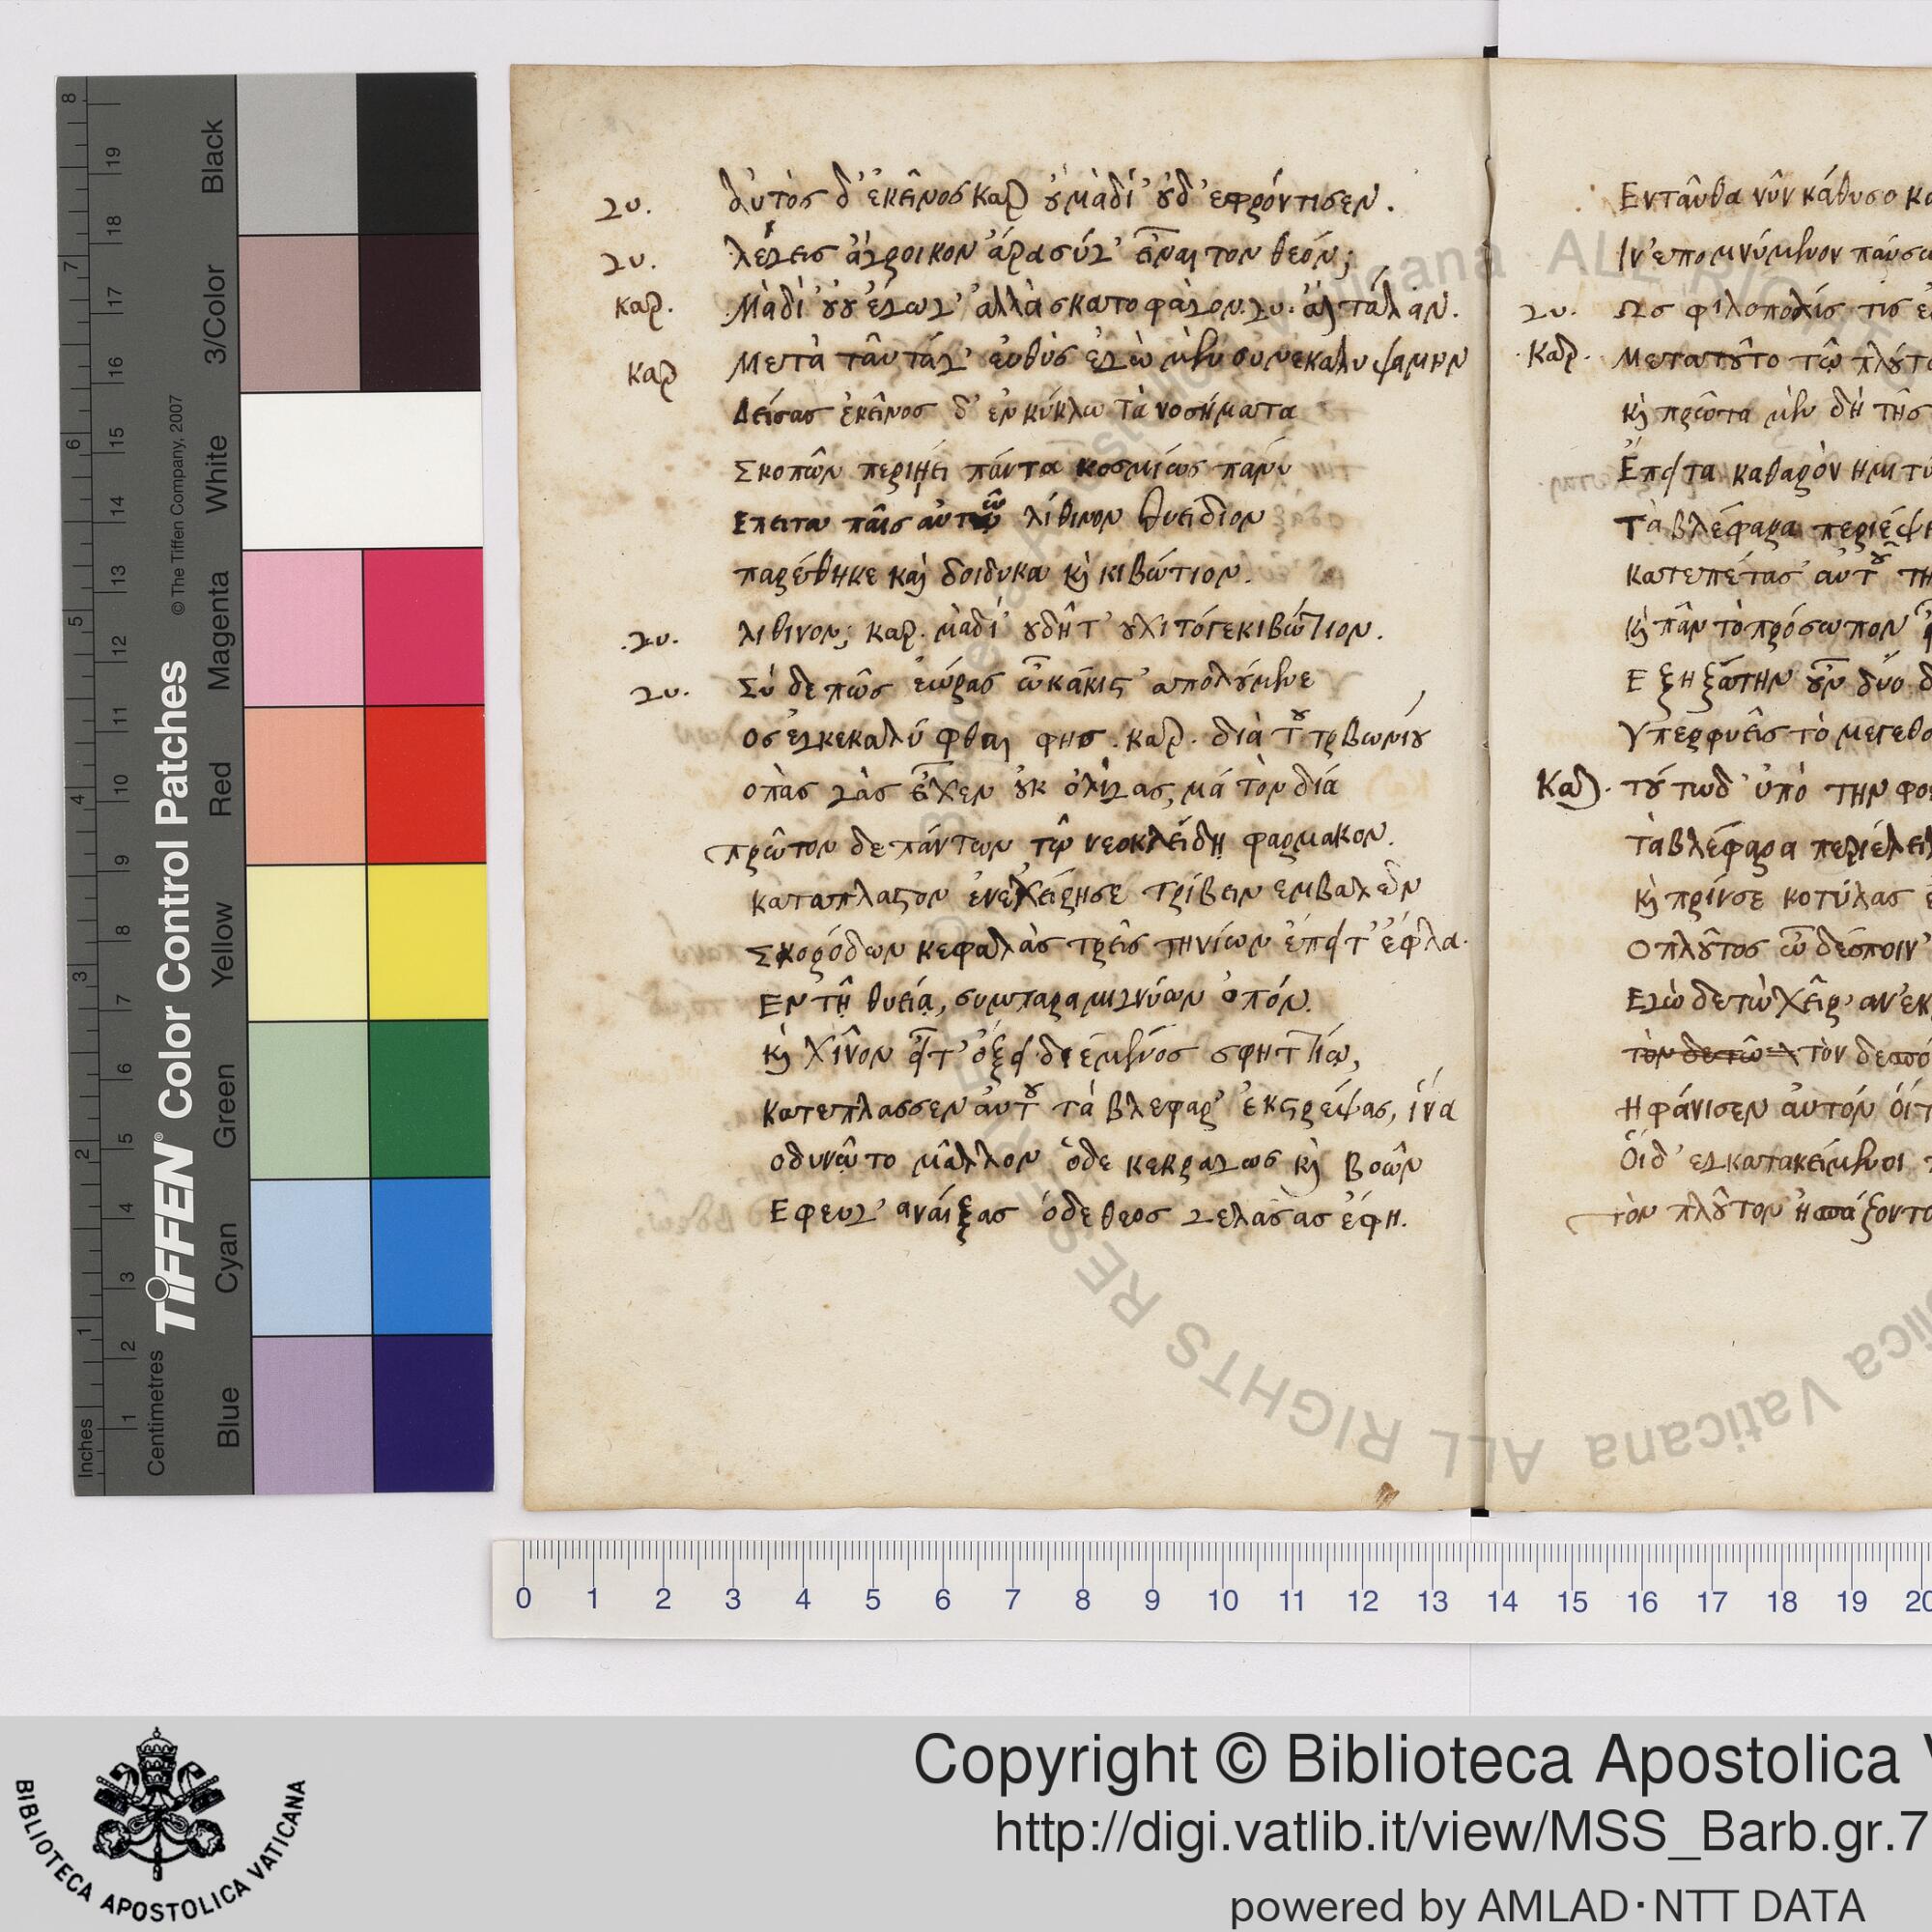 γυ. Αὐτὸς δ' ἐκεῖνος καρ οὐ μὰ δί' οὐδ' εφρόντισεν.
γυ. λέγεις ἄγροικον ἄρα σύγ' εἶναι τον θεόν;
καρ. Μὰ δί' οὐκ ἔγωγ' ἀλλὰ σκατοφάγον. γυ. αἲ τάλαν.
καρ Μετὰ ταῦτάγ' ἐυθὺς ἐγὼ μὲν συνεκαλυψαμην
Δείσας ἐκεῖνος δ' ἐν κύκλω τὰ νοσήματα
Σκοπῶν περιῄει πάντα κοσμίως πάνυ
Επειτα παῖς αὐτῶ λίθινον θυείδιον
παρέθηκε καὶ δοιδυκα κὶ κιβώτιον.
γυ. λιθινον; καρ. μὰ δί' οὐδῆτ' οὐχὶ τόγε κιβώτιον.
γυ. Σύ δε πῶς ἑώρας ὦ κάκιστ' απολούμενε
Ος εγκεκαλύφθαι φησ. καρ. διὰ τοῦ τρβωνίου
οπὰς γὰς εἶχεν οὐκ ὀλίγας, μά τὸν δία
πρῶτον δε πάντων τῷ νεοκλείδῃ φαρμακον.
καταπλαστον ἐνεχείρησε τρίβειν εμβαλὼν
Σκορόδων κεφαλὰς τρεῖς τηνίων ἔπειτ' έφλα.
Εν τῇ θυείᾳ, συμπαραμιγνύων ὀπόν.
κὶ χῖνον εἶτ' ὄξει διέμενος σφηττίῳ,
Κατεπλασσεν αὐτοῦ τά βλεφαρ' ἐκστρέψας, ἵνα
οδυνῷτο μᾶλλον ὁδε κεκραγως κὶ βοῶν
Εφευγ' ανάιξας ὁδε θεος γελάσας ἔφη.
Ενταῦθα νῦν κάθυσο
Ιν' επομνύμενον
γυ. Ως φιλοπολίς τις
Καρ. Μετατοῦτο τῷ
κὶ πρῶτα μὲν δή τῆς
Ἔπειτα καθαρὸν ημιτύ
Τα βλέφαρα περιέψη
Κατεπέτας' αυτοῦ τη
κὶ πᾶν τὸ πρόσωπον
Εξηξάτην οὖν δύο
Υπερφυεῖς τὸ μεγεθο
Καρ. τούτωδ' ὑπὸ την φοι
τὰ βλέφαρα περιέλει
κὶ πρίνσε κοτύλας
Ο πλοῦτος ὦ δέσποιν'
Εγὼ δετὼ χεῖρ' αν'εκ
τὸν δεσπό
Ηφάνισεν ἀυτόν ὁίτ
Ὁίδ' εγκατακείμενοι
τὸν πλοῦτον ἠσπάζοντο
TIFFEN® Color Control Patches
© The Tiffen Company, 2007
Inches
1 2 3 4 5 6 7 8
Centimetres
1 2 3 4 5 6 7 8 9 10 11 12 13 14 15 16 17 18 19
Blue Cyan Green Yellow Red Magenta White 3/Color Black
0 1 2 3 4 5 6 7 8 9 10 11 12 13 14 15 16 17 18 19 20
Vaticana ALL RIGHTS RESERVED
BIBLIOTECA APOSTOLICA VATICANA
Copyright © Biblioteca Apostolica V
http://digi.vatlib.it/view/MSS_Barb.gr.7
powered by AMLAD·NTT DATA